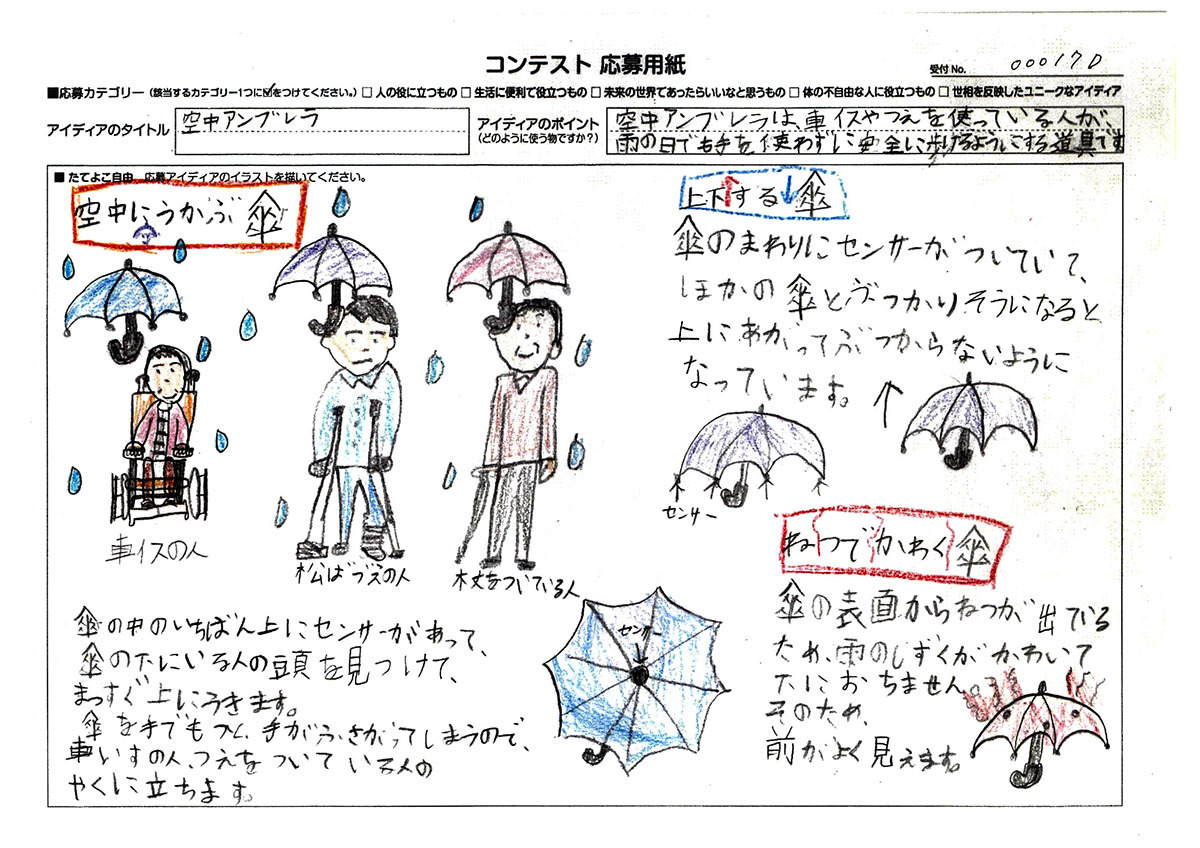 コンテスト 応募用紙
受付 No. 00017D
■応募カテゴリー（該当するカテゴリー1つに☑をつけてください。）□ 人の役に立つもの □ 生活に便利で役立つもの □ 未来の世界であったらいいなと思うもの □ 体の不自由な人に役立つもの □ 世相を反映したユニークなアイディア
アイディアのタイトル
空中アンブレラ
アイディアのポイント
（どのように使う物ですか？）
空中アンブレラは、車イスやつえを使っている人が、
雨の日でも手を使わずに安全に歩けるようにする道具です
■ たてよこ自由　応募アイディアのイラストを描いてください。
空中にうかぶ傘
車イスの人
松ばづえの人
杖をついている人
傘の中のいちばん上にセンサーがあって、
傘の下にいる人の頭を見つけて、
まっすぐ上にうきます。
傘を手でもつと、手がふさがってしまうので、
車いすの人、つえをついている人の
やくに立ちます。
センサー
上下する傘
傘のまわりにセンサーがついていて、
ほかの傘とぶつかりそうになると
上にあがってぶつからないように
なっています。
センサー
ねつでかわく傘
傘の表面からねつが出ている
ため、雨のしずくがかわいて
下におちません。
そのため、
前がよく見えます。